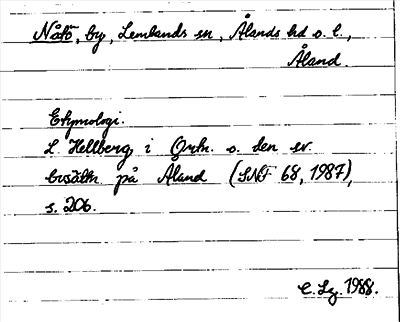 Nåtö, by, Lemlands sn, Ålands hd o. l.,
Åland.
Etymologi.
L. Hellberg i Ortn. o. den sv.
bosättn på Åland (SNF 68, 1987),
s. 206.
C. Lg. 1988.